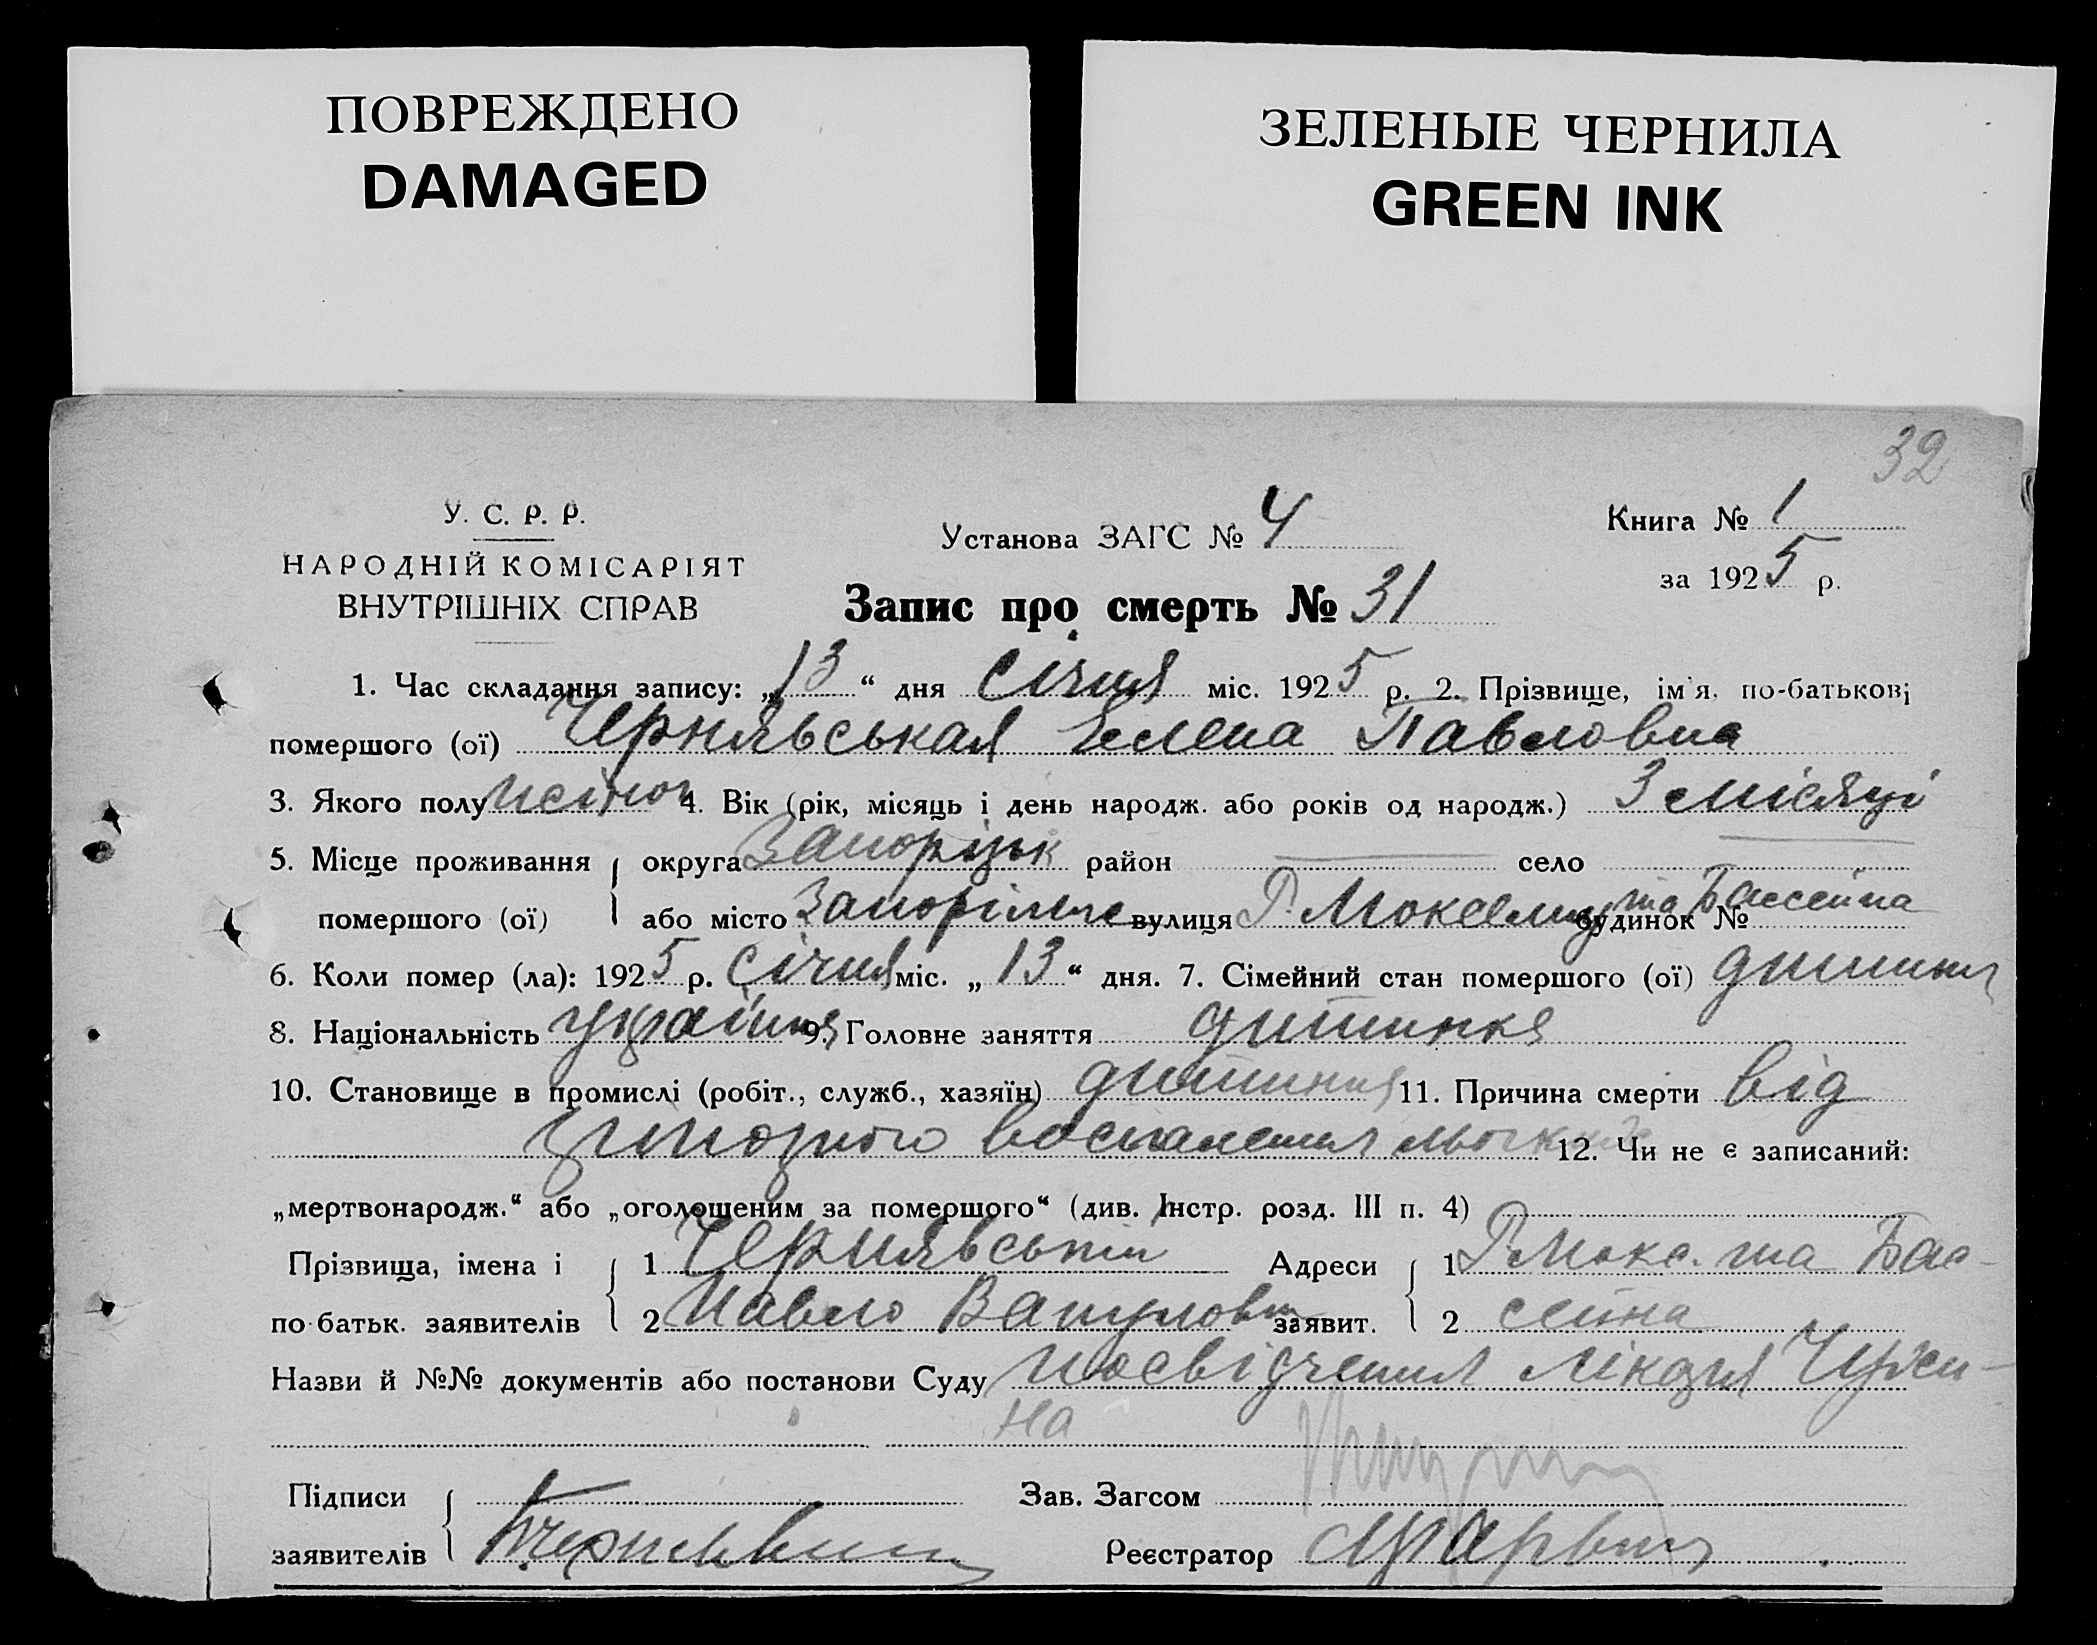 ПОВРЕЖДЕНО
DAMAGED
ЗЕЛЕНЫЕ ЧЕРНИЛА
GREEN INK
32
У. С. Р. Р.
НАРОДНІЙ КОМІСАРІЯТ
ВНУТРІШНІХ СПРАВ
Установа ЗАГС № 4
Книга № 1
за 1925 р.
Запис про смерть № 31
1. Час складання запису: „13“ дня січня міс. 1925 р. 2. Прізвище, ім'я, по-батькові
помершого (ої) Чернявськая Елена Павловна
3. Якого полу 4. Вік (рік, місяць і день народж. або років од народж.) 3 місяці
5. Місце проживання округа Запорізьк район — село
помершого (ої) або місто Запоріжже вулиця будинок № та Бассейна
6. Коли помер (ла): 1925 р. січня міс. „13“ дня. 7. Сімейний стан помершого (ої) дитина
8. Національність 9. Головне заняття дитинка
10. Становище в промислі (робіт., служб., хазяїн) дитина 11. Причина смерти від
воспаления 12. Чи не є записаний:
„мертвонародж.“ або „оголошеним за помершого“ (див. Інстр. розд. III п. 4)
Прізвища, імена і 1 Чернявський Адреси 1 Р. Мокс. та Бас-
по-батьк. заявителів 2 Павло заявит. 2 сейна
Назви й №№ документів або постанови Суду посвідчення лікаря
на
Підписи Зав. Загсом
заявителів Реєстратор